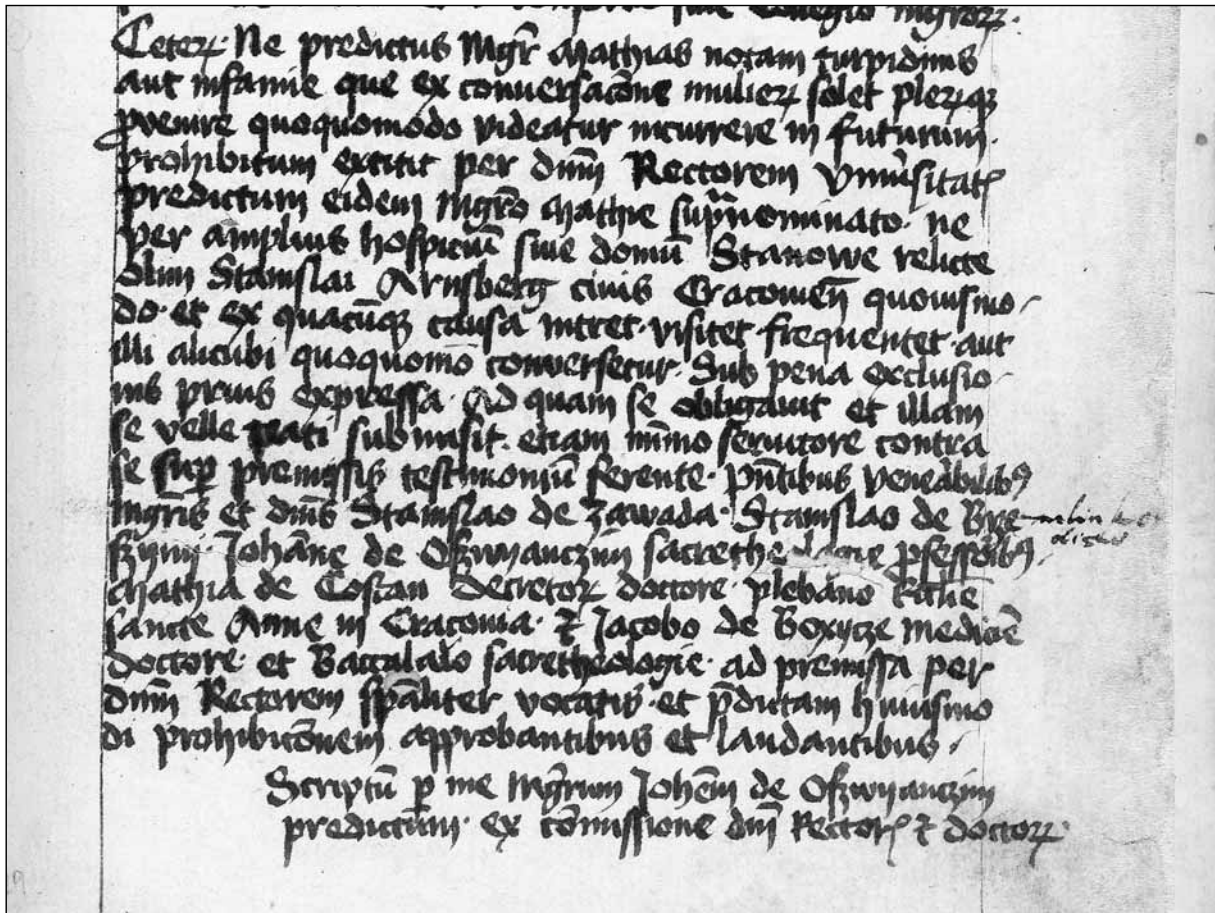 sive Collegio mgrorꝝ.
Ceterꝝ. Ne predictus Mgr̄ Mathias notam turpidinis
aut infamie que ex conversacōne mulierꝝ solet plerꝝqꝫ
ꝓvenire quoquomodo videatur incurrere in futurum.
prohibitum extitit per dnm̄ Rectorem Vniu̅sitatꝭ
predictum eidem Mgrō Mathie supͣnominato. ne
per amplius hospiciū sive domū Stanowe relicte
olim Stanislai Arnsberg civis Cracovien̄ quovismo-
do. et ex quacūqꝫ causa intret. visitet. frequentet. aut
illi alicubi quoquomō conversetur. Sub pena exclusio-
nis prius expressa. Ad quam se obligavit et illam
se velle pati submisit. etiam mīmo servitore contra
se sup̱ premissis testimoniū ferente. Pn̄tibus venerābilibꝰ
Mgris et dnis Stanislao de Zawada. Stanislao de Brze-
szyny. Johāne de Oszwyanczim sacretheologie ꝓfessōribꝰ.
Mathia de Costan decretorꝝ doctore. plebano Ecclie̅
sancte Anne in Cracovia. ⁊ Jacobo de Boxycze medicin̄e
doctore. et Baccalario sacretheologie. ad premissa per
dnm̄ Rectorem sp̄aliter vocatis. et p̄dictam huiusmo
di prohibicōnem approbantibus et laudantibus.
Scriptū ꝑ me Mgrum Johēm de Oszwyanczim
predictum. ex cōmissione dnī Rectorꝭ ⁊ doctorꝝ.